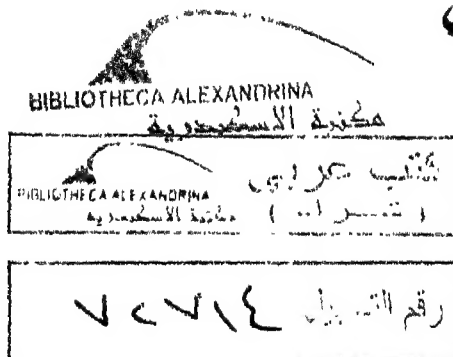 BIBLIOTHECA ALEXANDRINA
مكتبة الاسكندرية
BIBLIOTHECA ALEXANDRINA
مكتبة الاسكندرية
رقم التسجيل ٧٢٧١٤